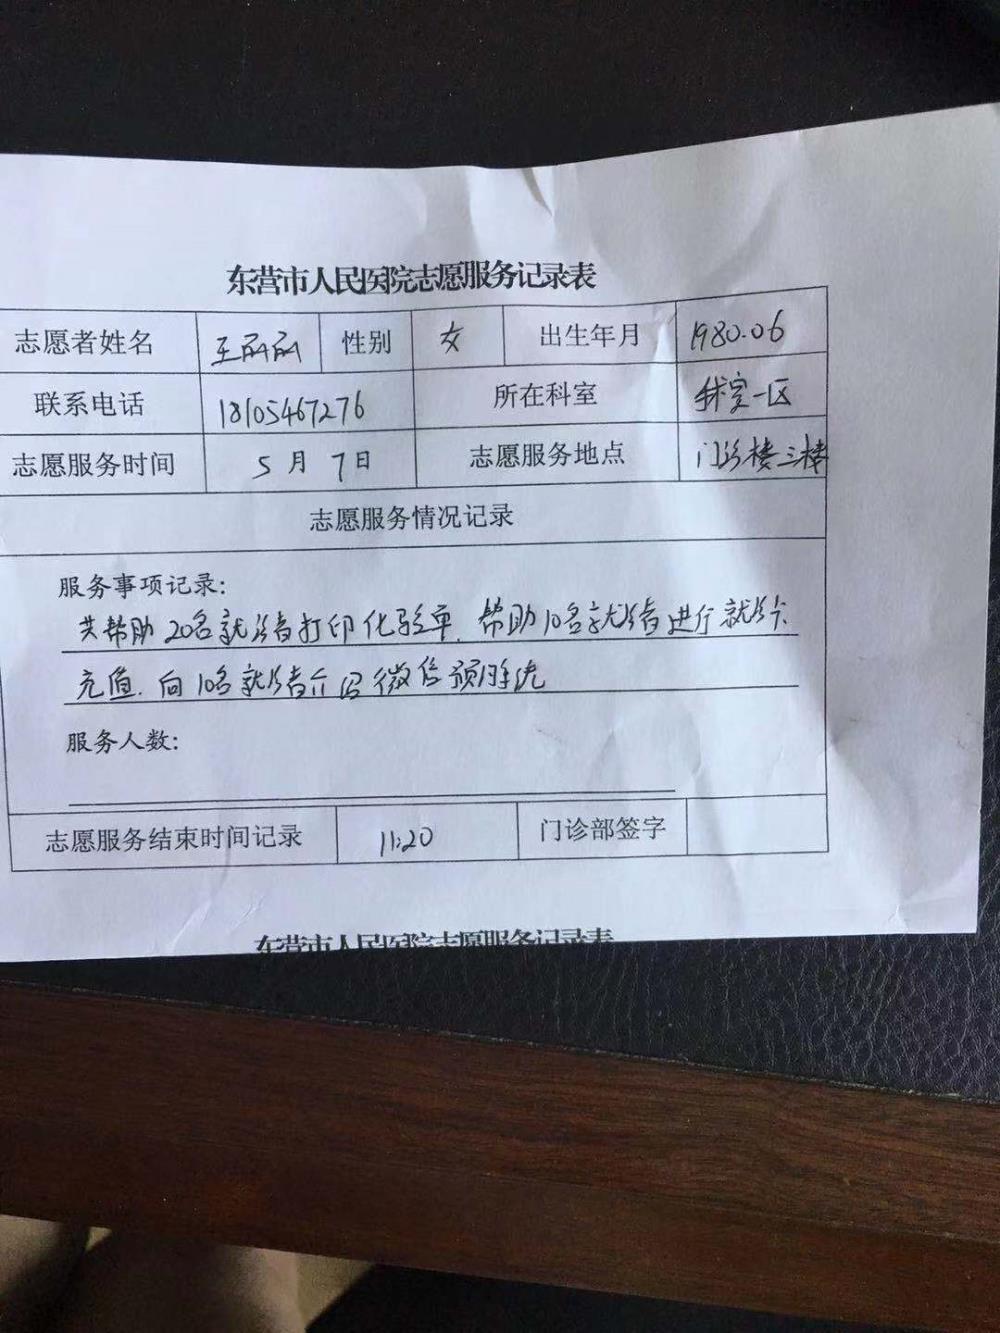 东营市人民医院志愿服务记录表
志愿者姓名 王丽丽 性别 女 出生年月 1980.06
联系电话 18105467276 所在科室
志愿服务时间 5月7日 志愿服务地点 门诊楼三楼
志愿服务情况记录
服务事项记录:
共帮助20名就诊者打印化验单.帮助10名就诊者进行就诊卡
充值.向10名就诊者介绍微信预
服务人数:
志愿服务结束时间记录 11:20 门诊部签字
东营市人民医院志愿服务记录表